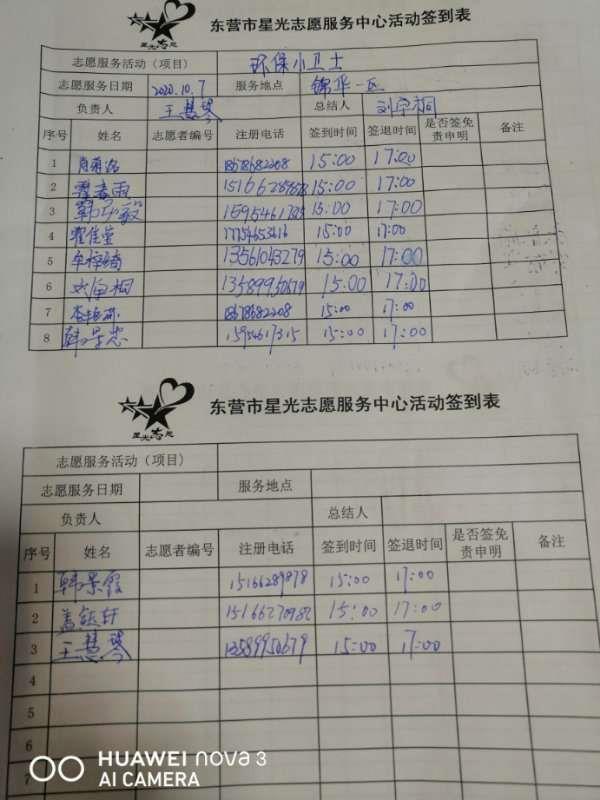 东营市星光志愿服务中心活动签到表
星光志愿
志愿服务活动（项目） 环保小卫士
志愿服务日期 2020.10.7 服务地点 锦华一区
负责人 王慧琴 总结人 刘宇桐
序号 姓名 志愿者编号 注册电话 签到时间 签退时间 是否签免责申明 备注
1 18678682208 15:00 17:00
2 霍春雨 15:00 17:00
3 15:00 17:00
4 17754653416 15:00 17:00
5 13561043279 15:00 17:00
6 刘宇桐 13589950679 15:00 17:00
7 18678682208 15:00 17:00
8 韩景忠 15954617315 15:00 17:00
东营市星光志愿服务中心活动签到表
星光志愿
志愿服务活动（项目）
志愿服务日期 服务地点
负责人 总结人
序号 姓名 志愿者编号 注册电话 签到时间 签退时间 是否签免责申明 备注
1 韩景霞 15166289878 15:00 17:00
2 盖钰轩 15:00 17:00
3 王慧琴 13589950679 15:00 17:00
4
5
6
7
HUAWEI nova 3
AI CAMERA